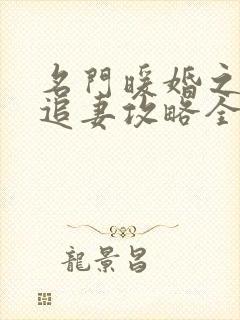 名門暖婚之
追妻攻略全
龍景昌